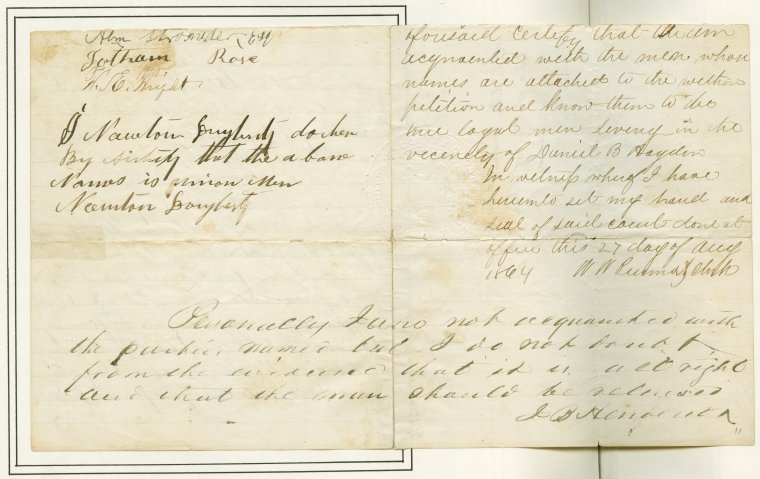 Abm
Jotham Rose
H. E. Wright
I Newton Dougherty do her
By sirtify that the a bove
Names is union Men
Newton Dougherty
aforesaid certify that I am
acquainted with the men whose
names are attached to the within
petition and know them to be
true loyal men living in the
vicenety of Daniel B Hayden
In witness whereof I have
hereunto set my hand and
seal of said court done at
office this 27 day of Aug
1864 W W Clerk
Personally I am not acquainted with
the parties names but I do not doubt
from the evidence that it is all right
and that the man should be released
J B Henderson